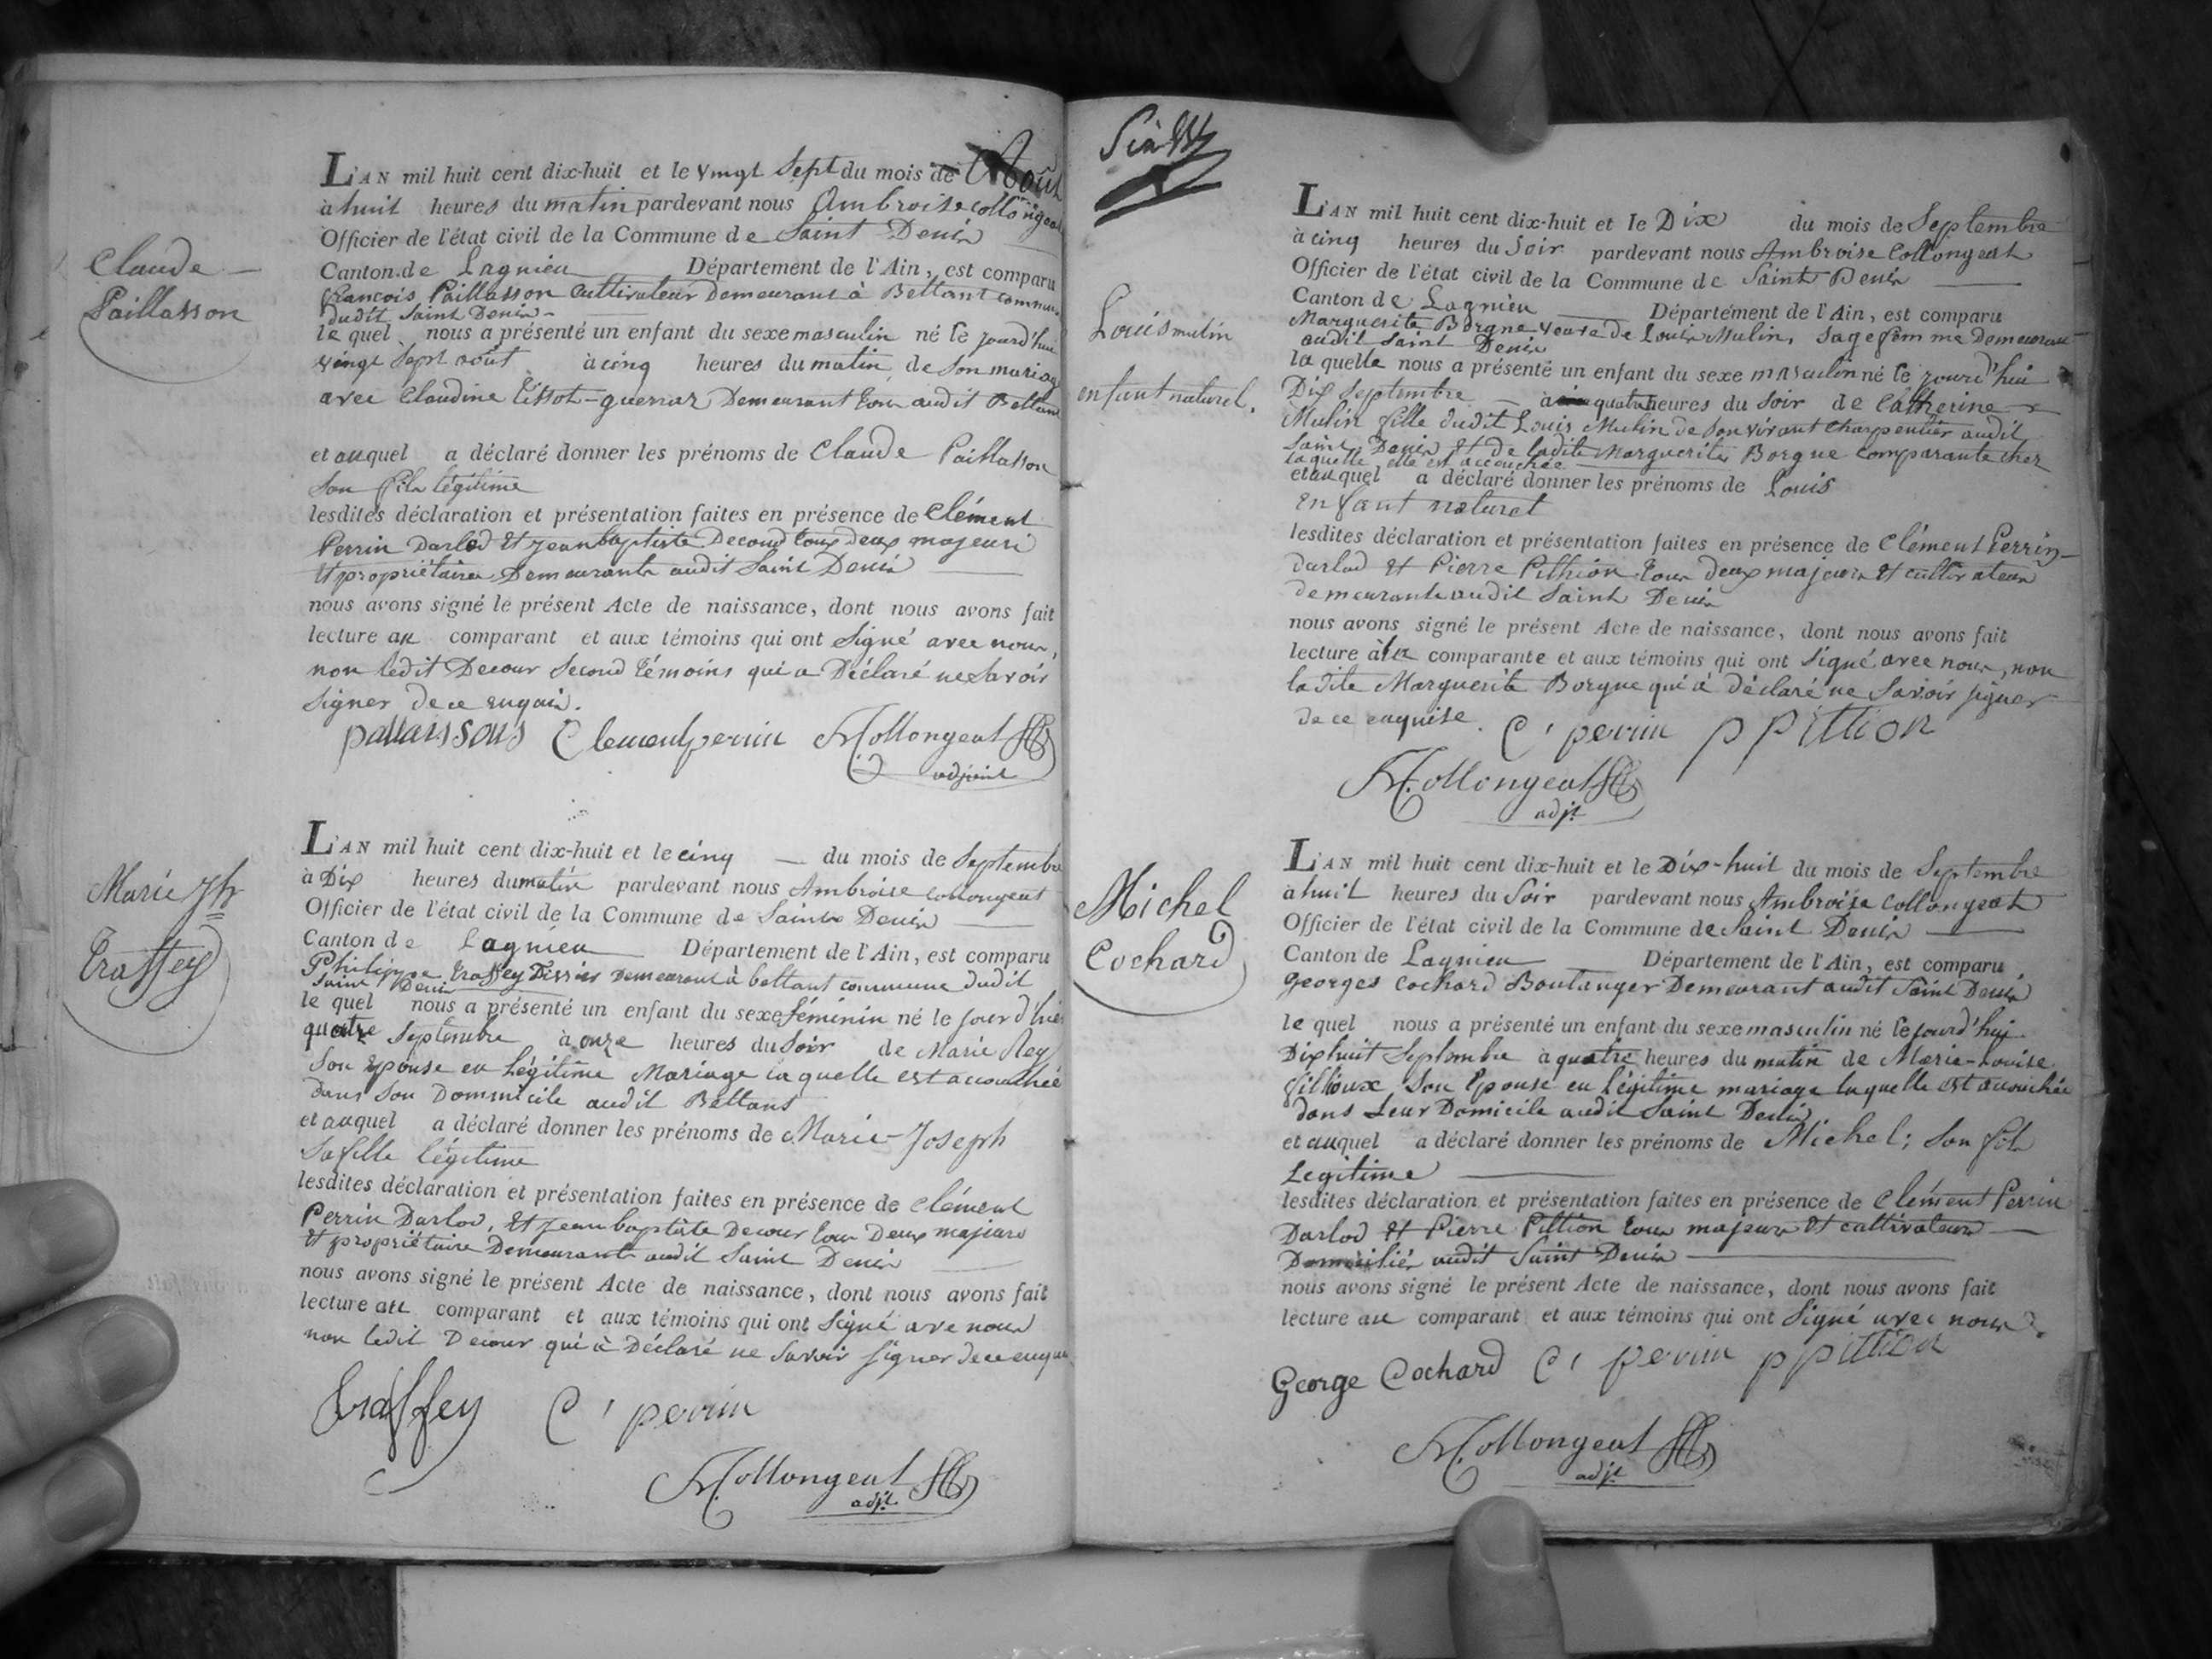 Claude
Paillasson
L'AN mil huit cent dix-huit et le vingt Sept du mois de Août
à huit heures du matin pardevant nous Ambroise Collongeat
Officier de l'état civil de la Commune de Saint Denis
Canton de Lagnieu Département de l'Ain, est comparu
françois Paillasson Cultivateur Demeurant à Bettant commune
dudit Saint Denis
le quel nous a présenté un enfant du sexe masculin né le jourd'hui
vingt Sept août à cinq heures du matin, de Son mariage
avec Claudine Tissot-guerraz Demeurant tous audit Bettant
et auquel a déclaré donner les prénoms de Claude Paillasson
Son fils légitime
lesdites déclaration et présentation faites en présence de Clément
Perrin Darlod et jean baptiste Decour tous deux majeurs
et propriétaires Demeurants audit Saint Denis
nous avons signé le présent Acte de naissance, dont nous avons fait
lecture au comparant et aux témoins qui ont Signé avec nous,
non ledit Decour Second témoins qui a Déclaré ne Savoir
Signer de ce enquis.
pallaissons Clementperrin ACollongeat
adjoint
Marie Jh
Traffey
L'AN mil huit cent dix-huit et le cinq du mois de Septembre
à Dix heures du matin pardevant nous Ambroise Collongeat
Officier de l'état civil de la Commune de Saint Denis
Canton de Lagnieu Département de l'Ain, est comparu
Philippe Traffey Demeurant à bettant commune dudit
Saint Denis
le quel nous a présenté un enfant du sexe féminin né le jour d'hier
quatre Septembre à onze heures du Soir de Marie Rey
Son Epouse en Légitime Mariage laquelle est accouchée
Dans Son Dommicile audit Bettans
et auquel a déclaré donner les prénoms de Marie-Joseph
Sa fille légitime
lesdites déclaration et présentation faites en présence de Clément
Perrin Darlod, et jean baptiste Decour tous Deux majeurs
et propriétaire Demeurants audit Saint Denis
nous avons signé le présent Acte de naissance, dont nous avons fait
lecture au comparant et aux témoins qui ont Signé ave nous
non ledit Decour qui à Déclaré ne Savoir Signer de ce enquis
traffey C' perrin
ACollongeat
adjt
Louis mulin
enfant naturel.
L'AN mil huit cent dix-huit et le Dix du mois de Septembre
à cinq heures du Soir pardevant nous Ambroise Collongeat
Officier de l'état civil de la Commune de Saint Denis
Canton de Lagnieu Département de l'Ain, est comparu
Marguerite Borgne veuve de Louis Mulin, Sage femme demeurant
audit Saint Denis
la quelle nous a présenté un enfant du sexe masculin né le jourd'hui
Dix Septembre à quatre heures du Soir de Catherine
Mulin fille dudit Louis Mulin de Son vivant Charpentier audit
Saint Denis et de ladite Marguerite Borgne Comparante chez
laquelle elle est accouchée
et auquel a déclaré donner les prénoms de Louis
Enfant naturel
lesdites déclaration et présentation faites en présence de Clément Perrin-
Darlod et Pierre Pithion tous deux majeurs et cultivateurs
demeurants audit Saint Denis
nous avons signé le présent Acte de naissance, dont nous avons fait
lecture à la comparante et aux témoins qui ont Signé avec nous, non
ladite Marguerite Borgne qui à déclaré ne Savoir signer
de ce enquise. C' perrin p pittion
ACollongeat
adjt
Michel
Cochard
L'AN mil huit cent dix-huit et le Dix-huit du mois de Septembre
à huit heures du Soir pardevant nous Ambroise Collongeat
Officier de l'état civil de la Commune de Saint Denis
Canton de Lagnieu Département de l'Ain, est comparu
Georges Cochard Boulanger Demeurant audit Saint Denis
le quel nous a présenté un enfant du sexe masculin né le jourd'hui
Dixhuit Septembre à quatre heures du matin de Marie-Louise
fillioux Son Epouse en Légitime mariage laquelle est accouchée
dans Leur Domicile audit Saint Denis
et auquel a déclaré donner les prénoms de Michel; Son fils
Legitime
lesdites déclaration et présentation faites en présence de Clément Perrin
Darlod et Pierre Pittion tous majeurs et cultivateurs
Domiciliés audit Saint Denis
nous avons signé le présent Acte de naissance, dont nous avons fait
lecture au comparant et aux témoins qui ont Signé avec nous.
George Cochard C' perrin p pittion
ACollongeat
adjt